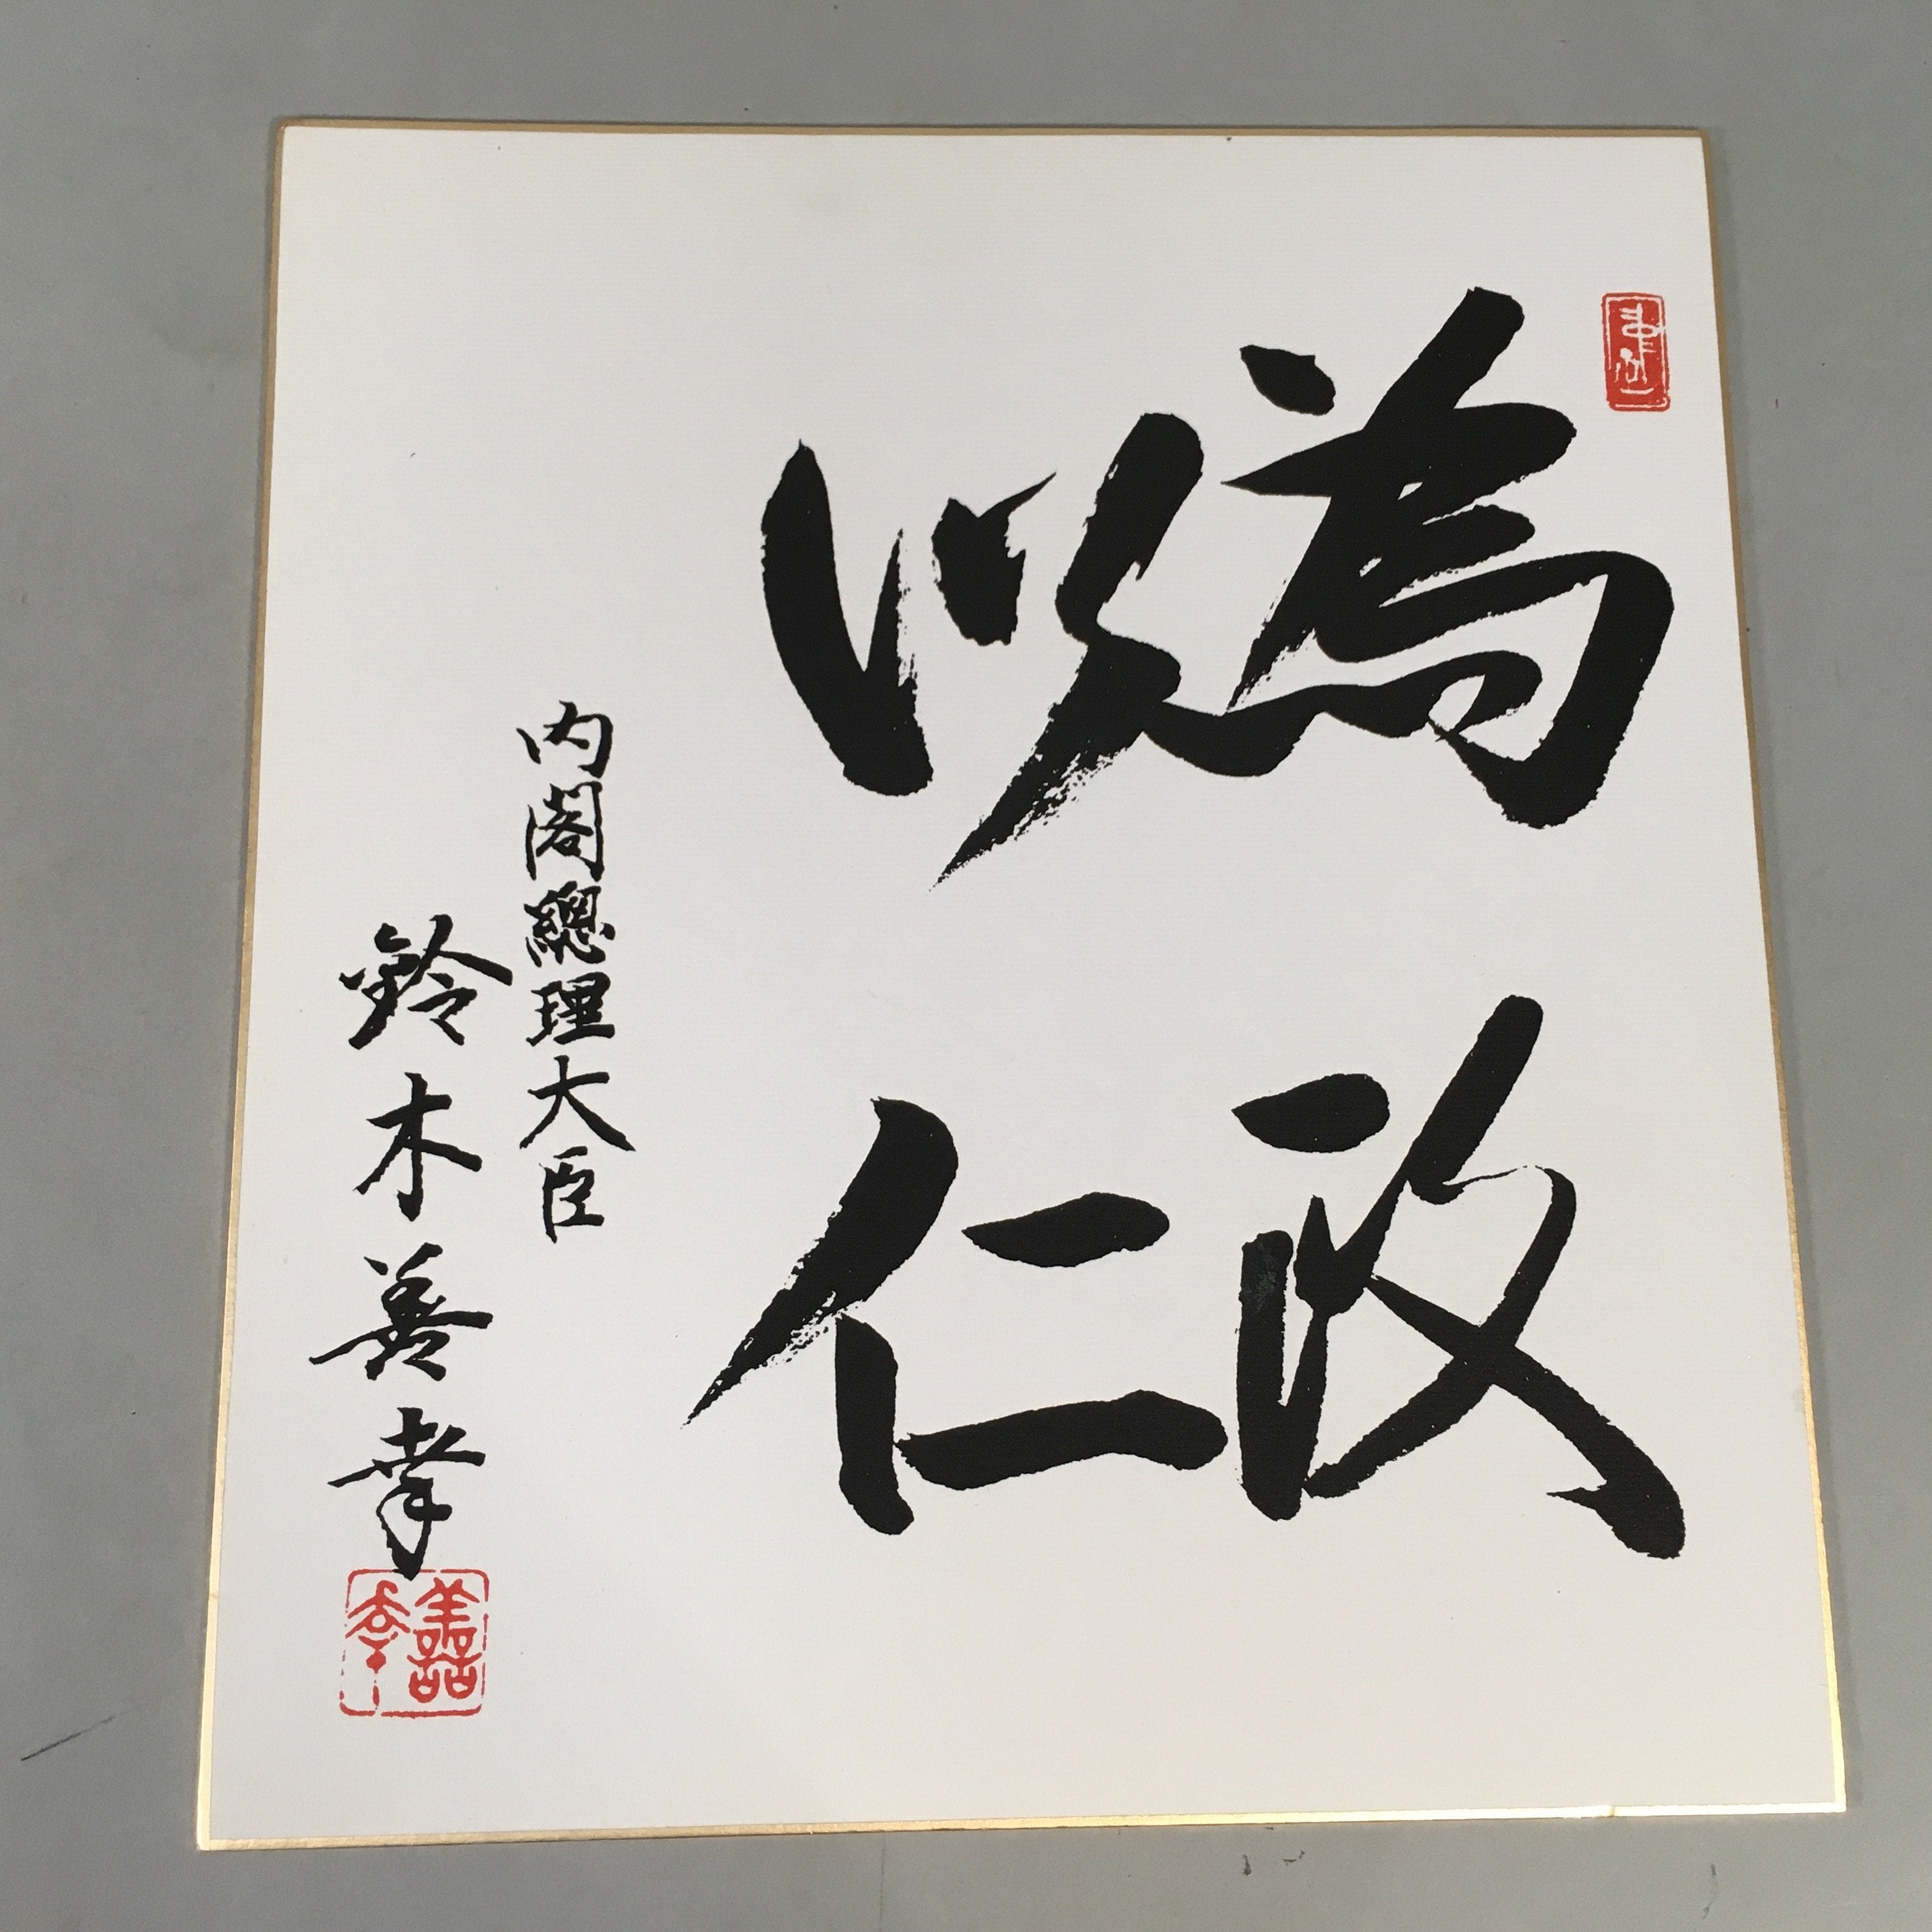 為政
以仁
内閣總理大臣
鈴木善幸
善幸